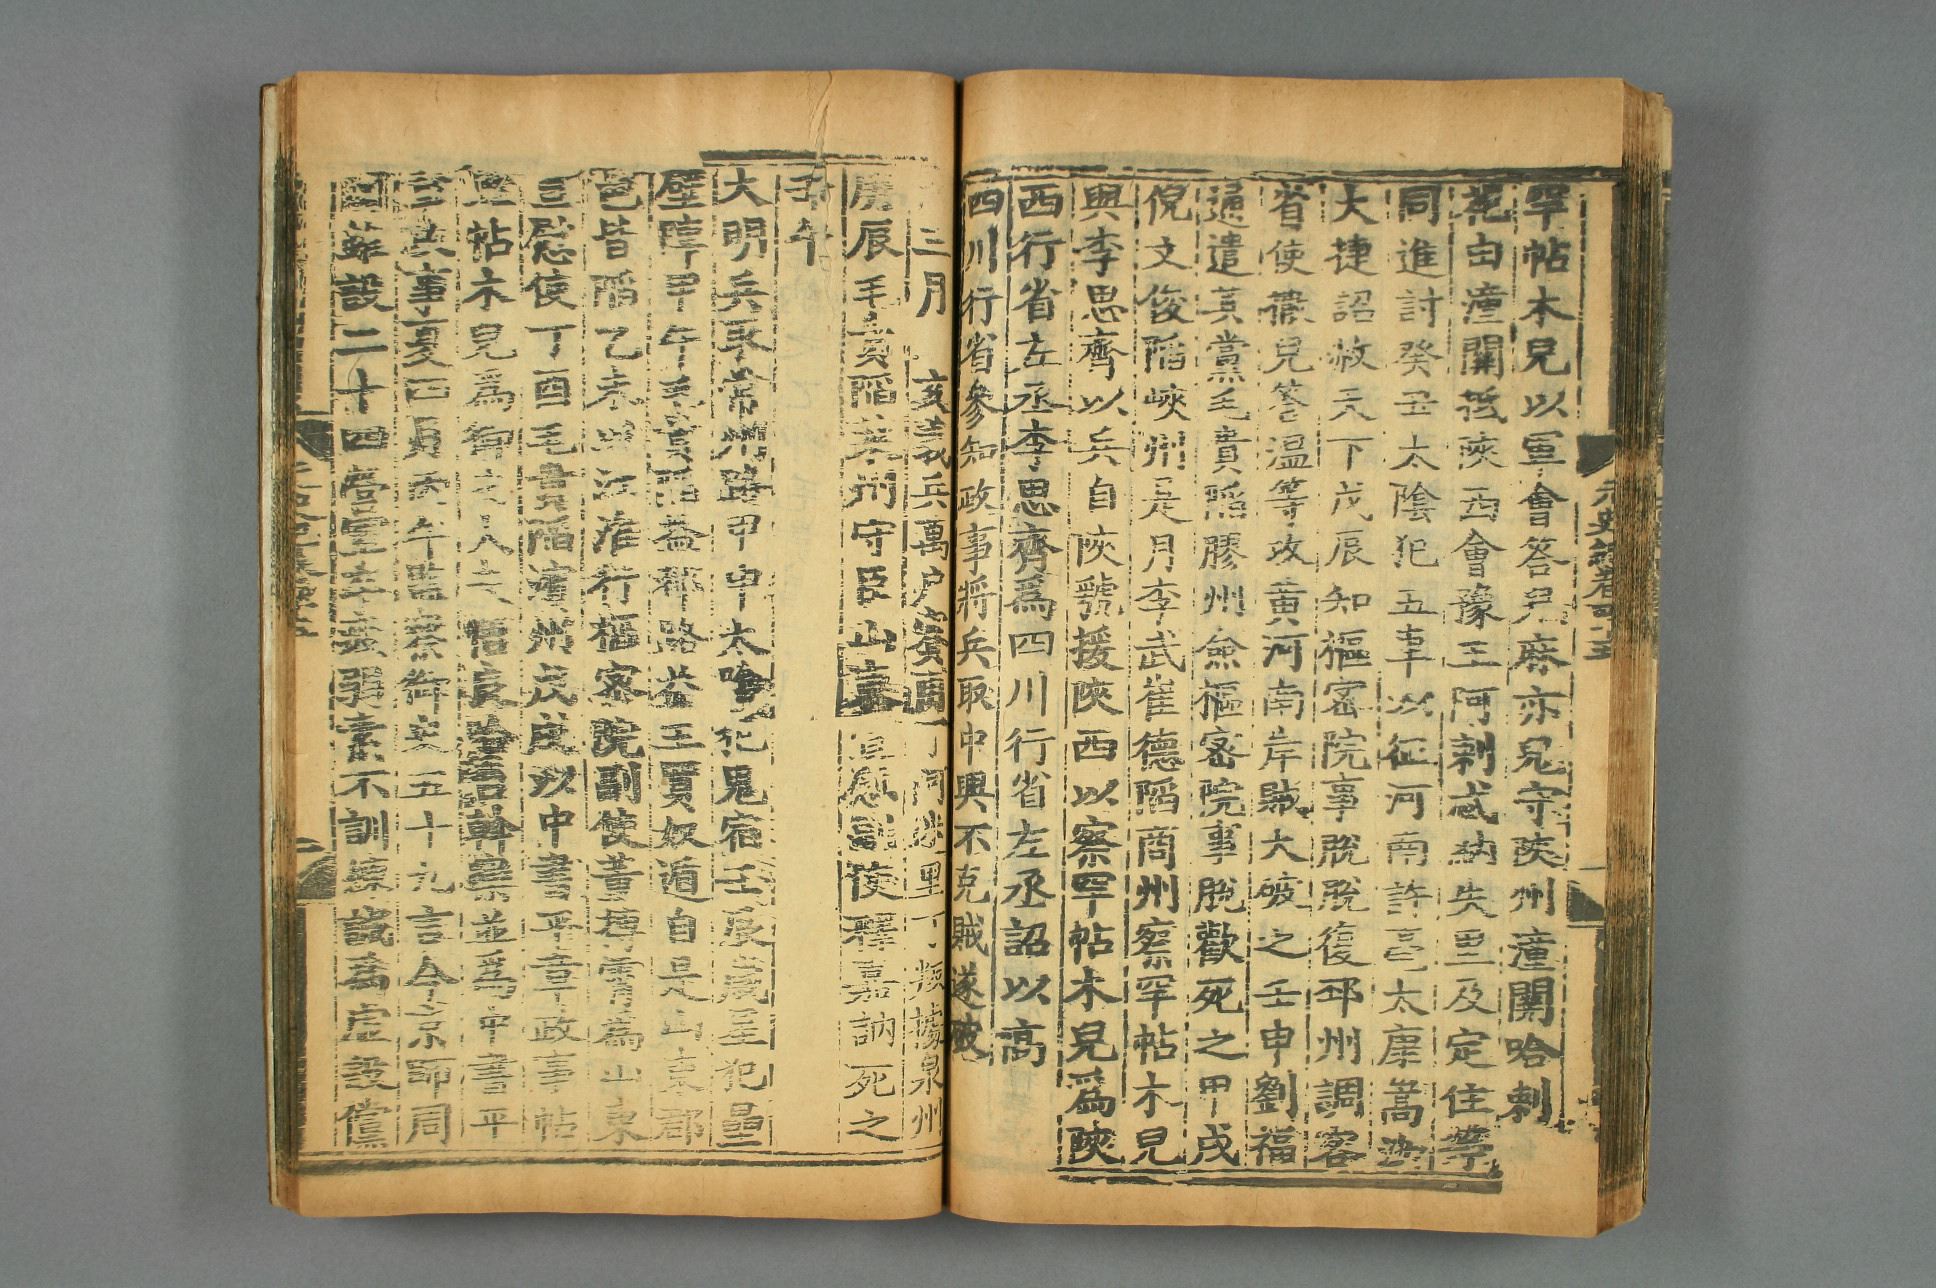 罕帖木兒以軍會答兒麻亦兒守陝州潼關哈剌
花由潼關抵陝西會豫王阿剌忒納失里及定住等
同進討癸丑太陰犯五車以征河南許亳太康嵩汝
大捷詔赦天下戊辰知樞密院事脫脫復邳州調客
省使撒兒答溫等攻黃河南岸賊大破之壬申劉福
通遣其黨毛貴陷膠州僉樞密院事脫歡死之甲戌
倪文俊陷峽州是月李武崔德陷商州察罕帖木兒
與李思齊以兵自陝虢援陝西以察罕帖木兒爲陝
西行省左丞李思齊爲四川行省左丞詔以高
四川行省參知政事將兵取中興不克賊遂破
三月 亥義兵萬戶賽甫丁阿迷里丁叛據泉州
庚辰毛貴陷萊州守臣山東宣慰副使釋嘉訥死之
壬午
大明兵取常州路甲申太陰犯鬼宿壬辰歲星犯壘
壁陣甲午毛貴陷益都路益王買奴遁自是山東郡
邑皆陷乙未以江淮行樞密院副使董摶霄爲山東
宣慰使丁酉毛貴陷濱州戊戌以中書平章政事帖
里帖木兒爲御史大夫悟良哈台斡欒並爲中書平
章政事夏四月丙午監察御史五十九言今京師周
圍雖設二十四營軍卒疲弱素不訓練誠爲虛設儻
元史卷四十五